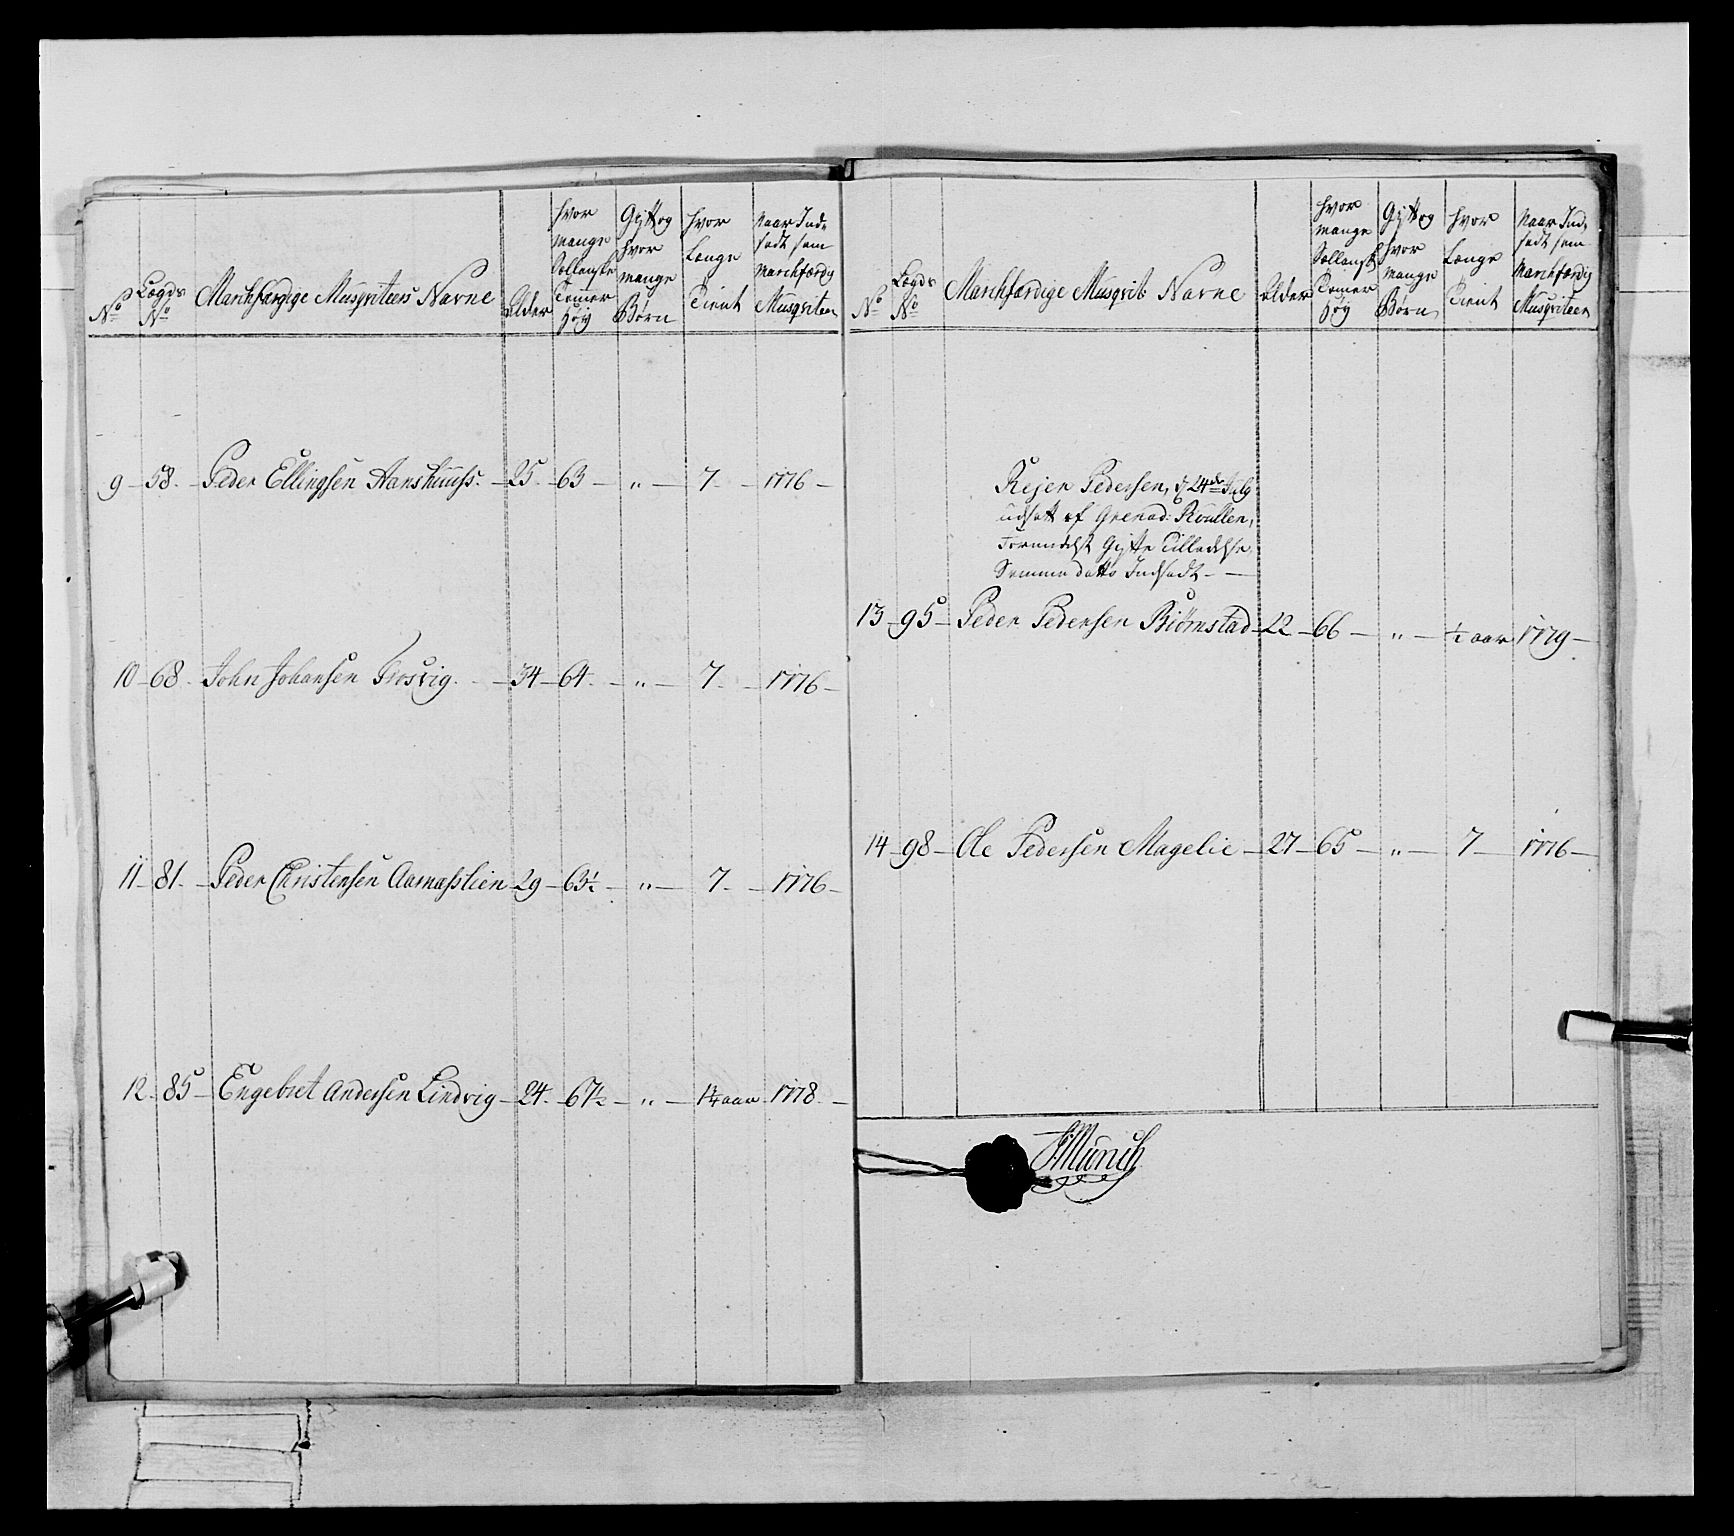 No
Lægds No
Marchfærdige Musqviteers Navne
Alder
hvor mange Sællanske Tomer Høy
Gift og hvor mange Børn
hvor Længe Tient
Naar Indsadt som Marchfærdig Musqviteer
9 – 58 – Peder Ellingsen Hanshuuss. – 25 – 63 – " – 7 – 1776 –
10 – 68 – John Johansen Frosvig. – 34 – 64 – " – 7 – 1776 –
11 – 81 – Peder Christensen Aarnæsslien – 29 – 63½ – " – 7 – 1776 –
12 – 85 – Engebret Andersen Lindvig – 24 – 67½ – " – 1¼ aar – 1778 –
No
Lægds No
Marchfærdige Musqvit: Navne
Alder
hvor mange Sællansk Tomer Høy
Gift og hvor mange Børn
hvor Længe Tient
Naar Indsadt som Marchfærdig Musqviteer
Rejer Pedersen, d 24de July
udsatt af Grenad: Rullen,
Formedelst Gifte Tilladelse,
Samme dato Indsadt –
13 – 95 – Peder Pedersen Biørnstad – 22 – 66 – " – ½ aar 1779 –
14 – 98 – Ole Pedersen Magelie – 27 – 65 – " – 7 – 1776 –
Munch